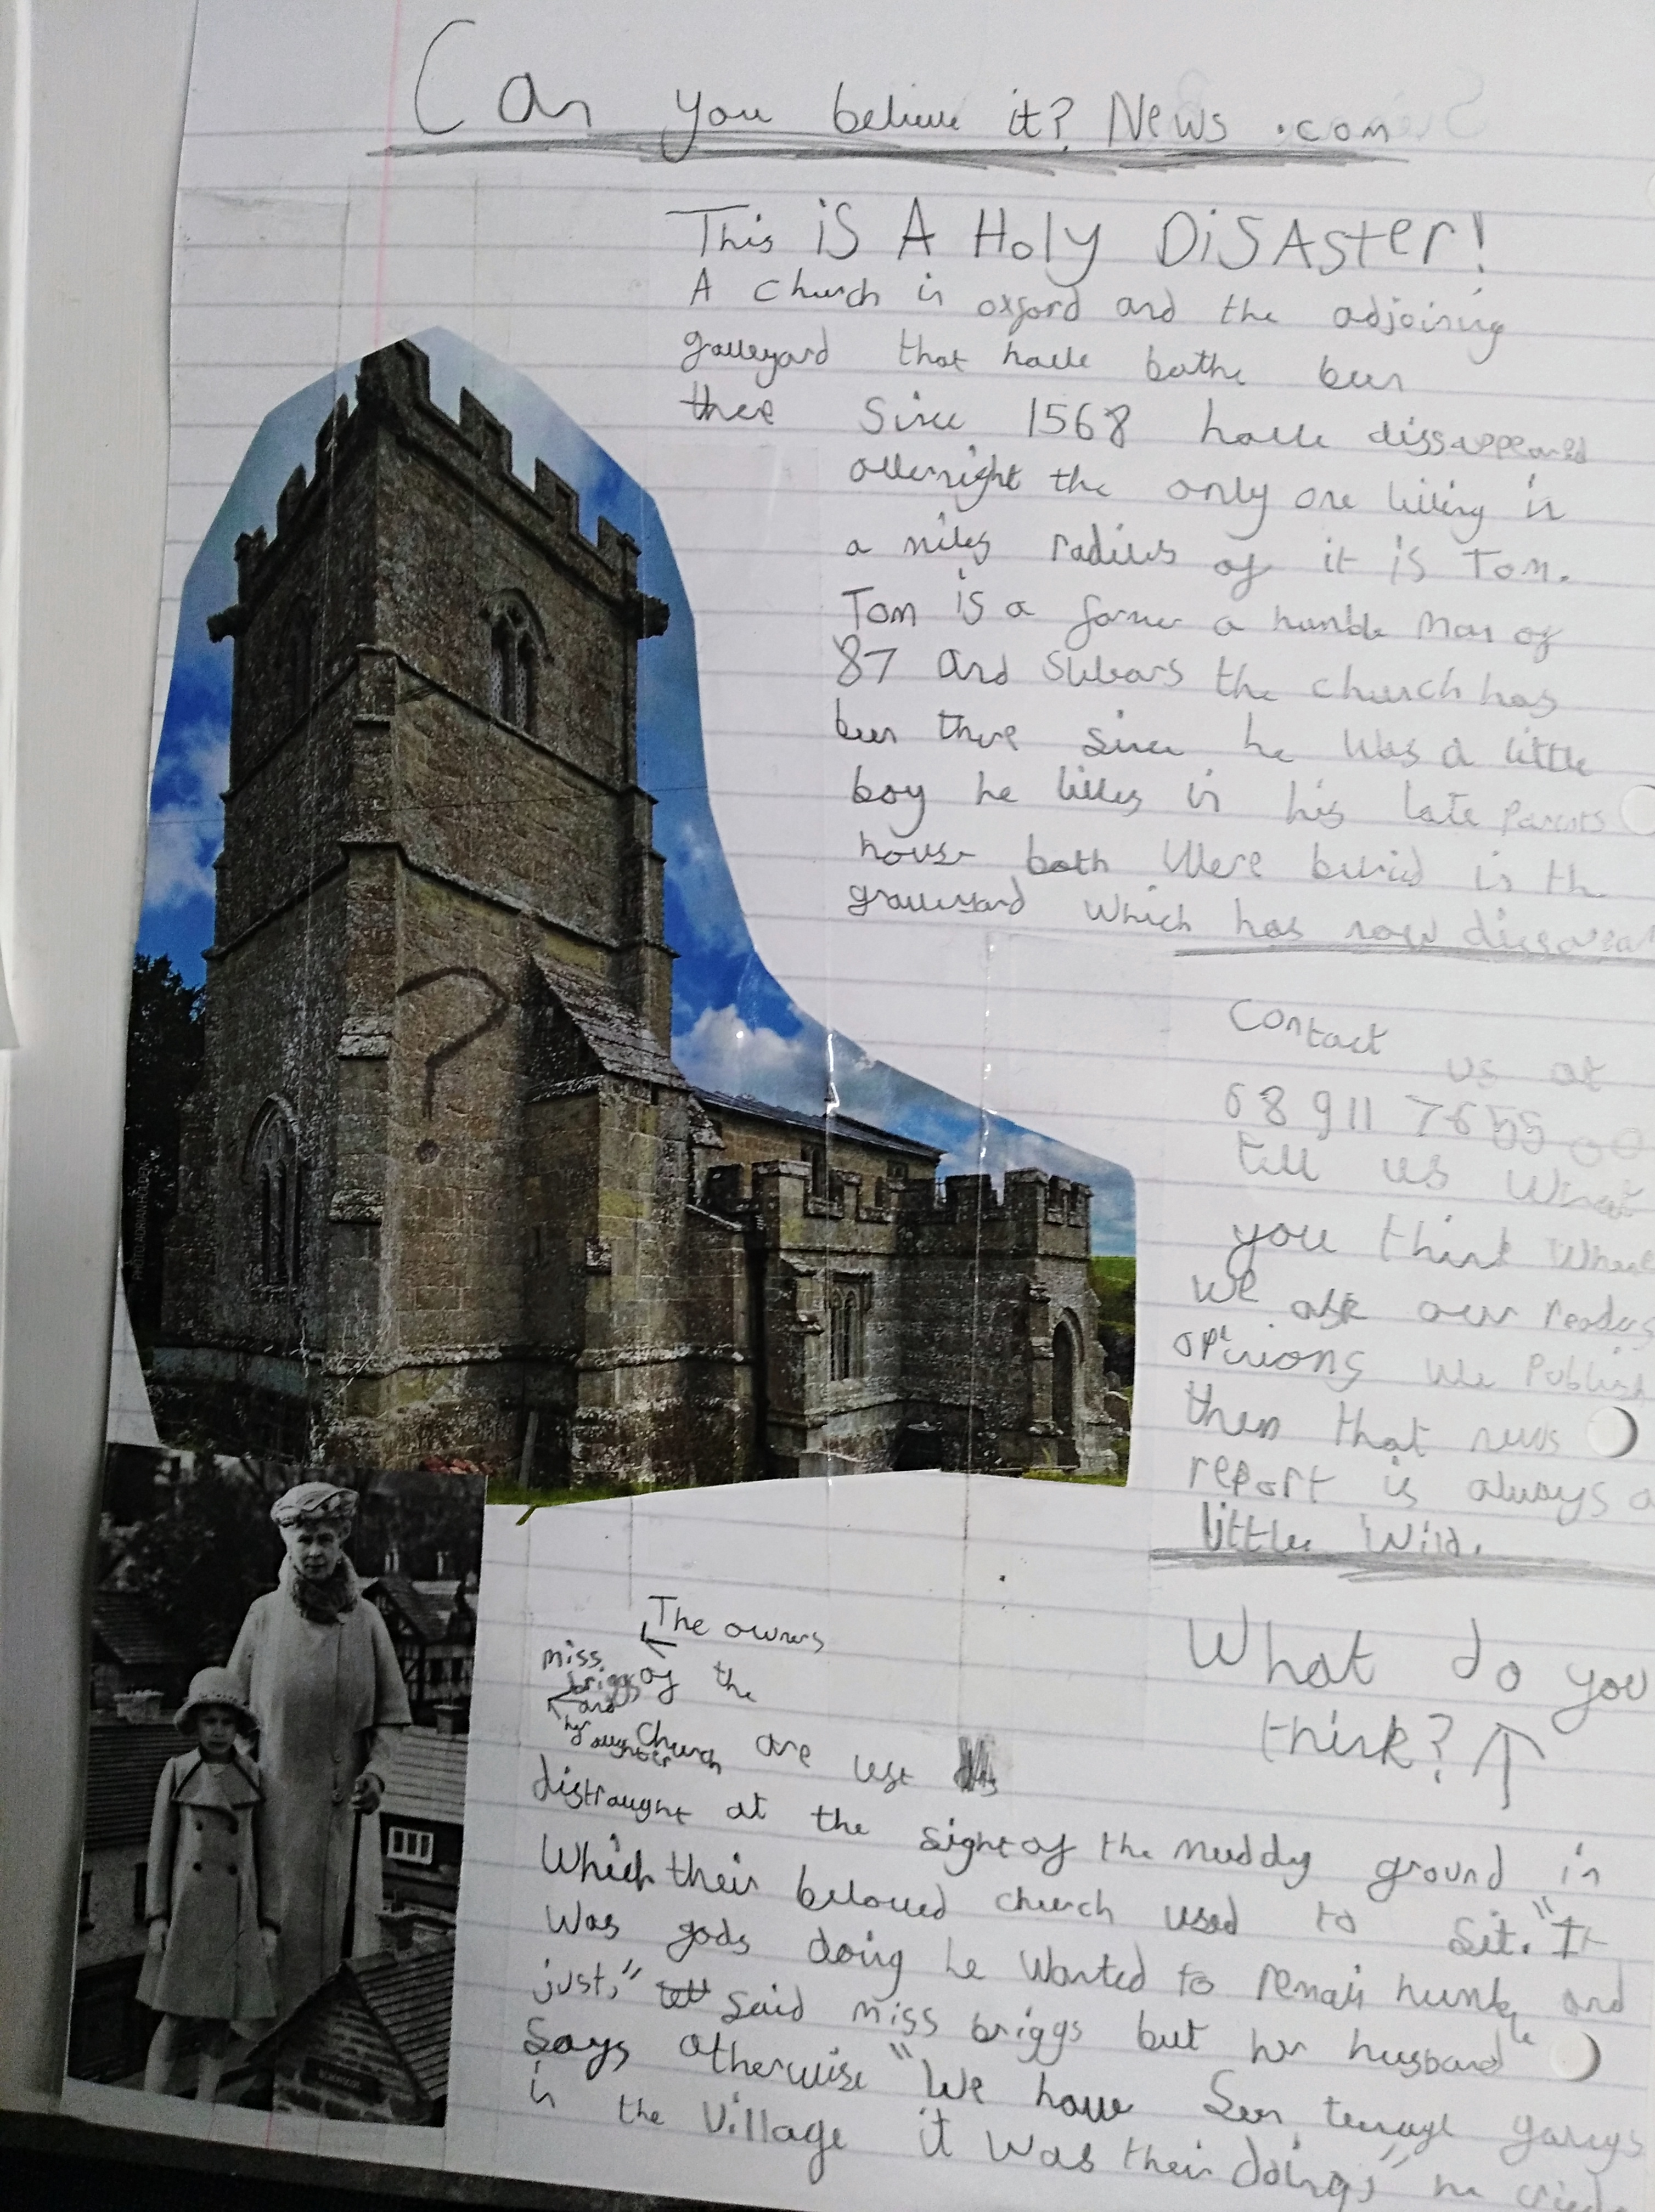 Can you believe it? News .com
This iS A Holy DiSAster!
A church in oxford and the adjoining
graveyard that have bothe been
there Since 1568 have dissappeared
overnight the only one living in
a miles radius of it is Tom.
Tom is a farmer a humble man of
87 and swears the church has
been there since he was a little
boy he lives in his late parents
house both were buried in th
graveyard which has now
Contact us at
68 911 7655 00
tell us what
you think when
we ask our readers
opinions we Publish
them that news
report is always a
little wild.
What do you
think?
The owners
of the
miss
briggs
and
her
daughter
Church are
distraught at the sight of the muddy ground in
Which their beloved church used to sit. "It
was gods doing he wanted to remain humble and
just," said miss briggs but her husband
Says otherwise "We have Seen teenage gangs
in the Village it was their doing" he cried
PHOTO: ADRIAN HOLDEN